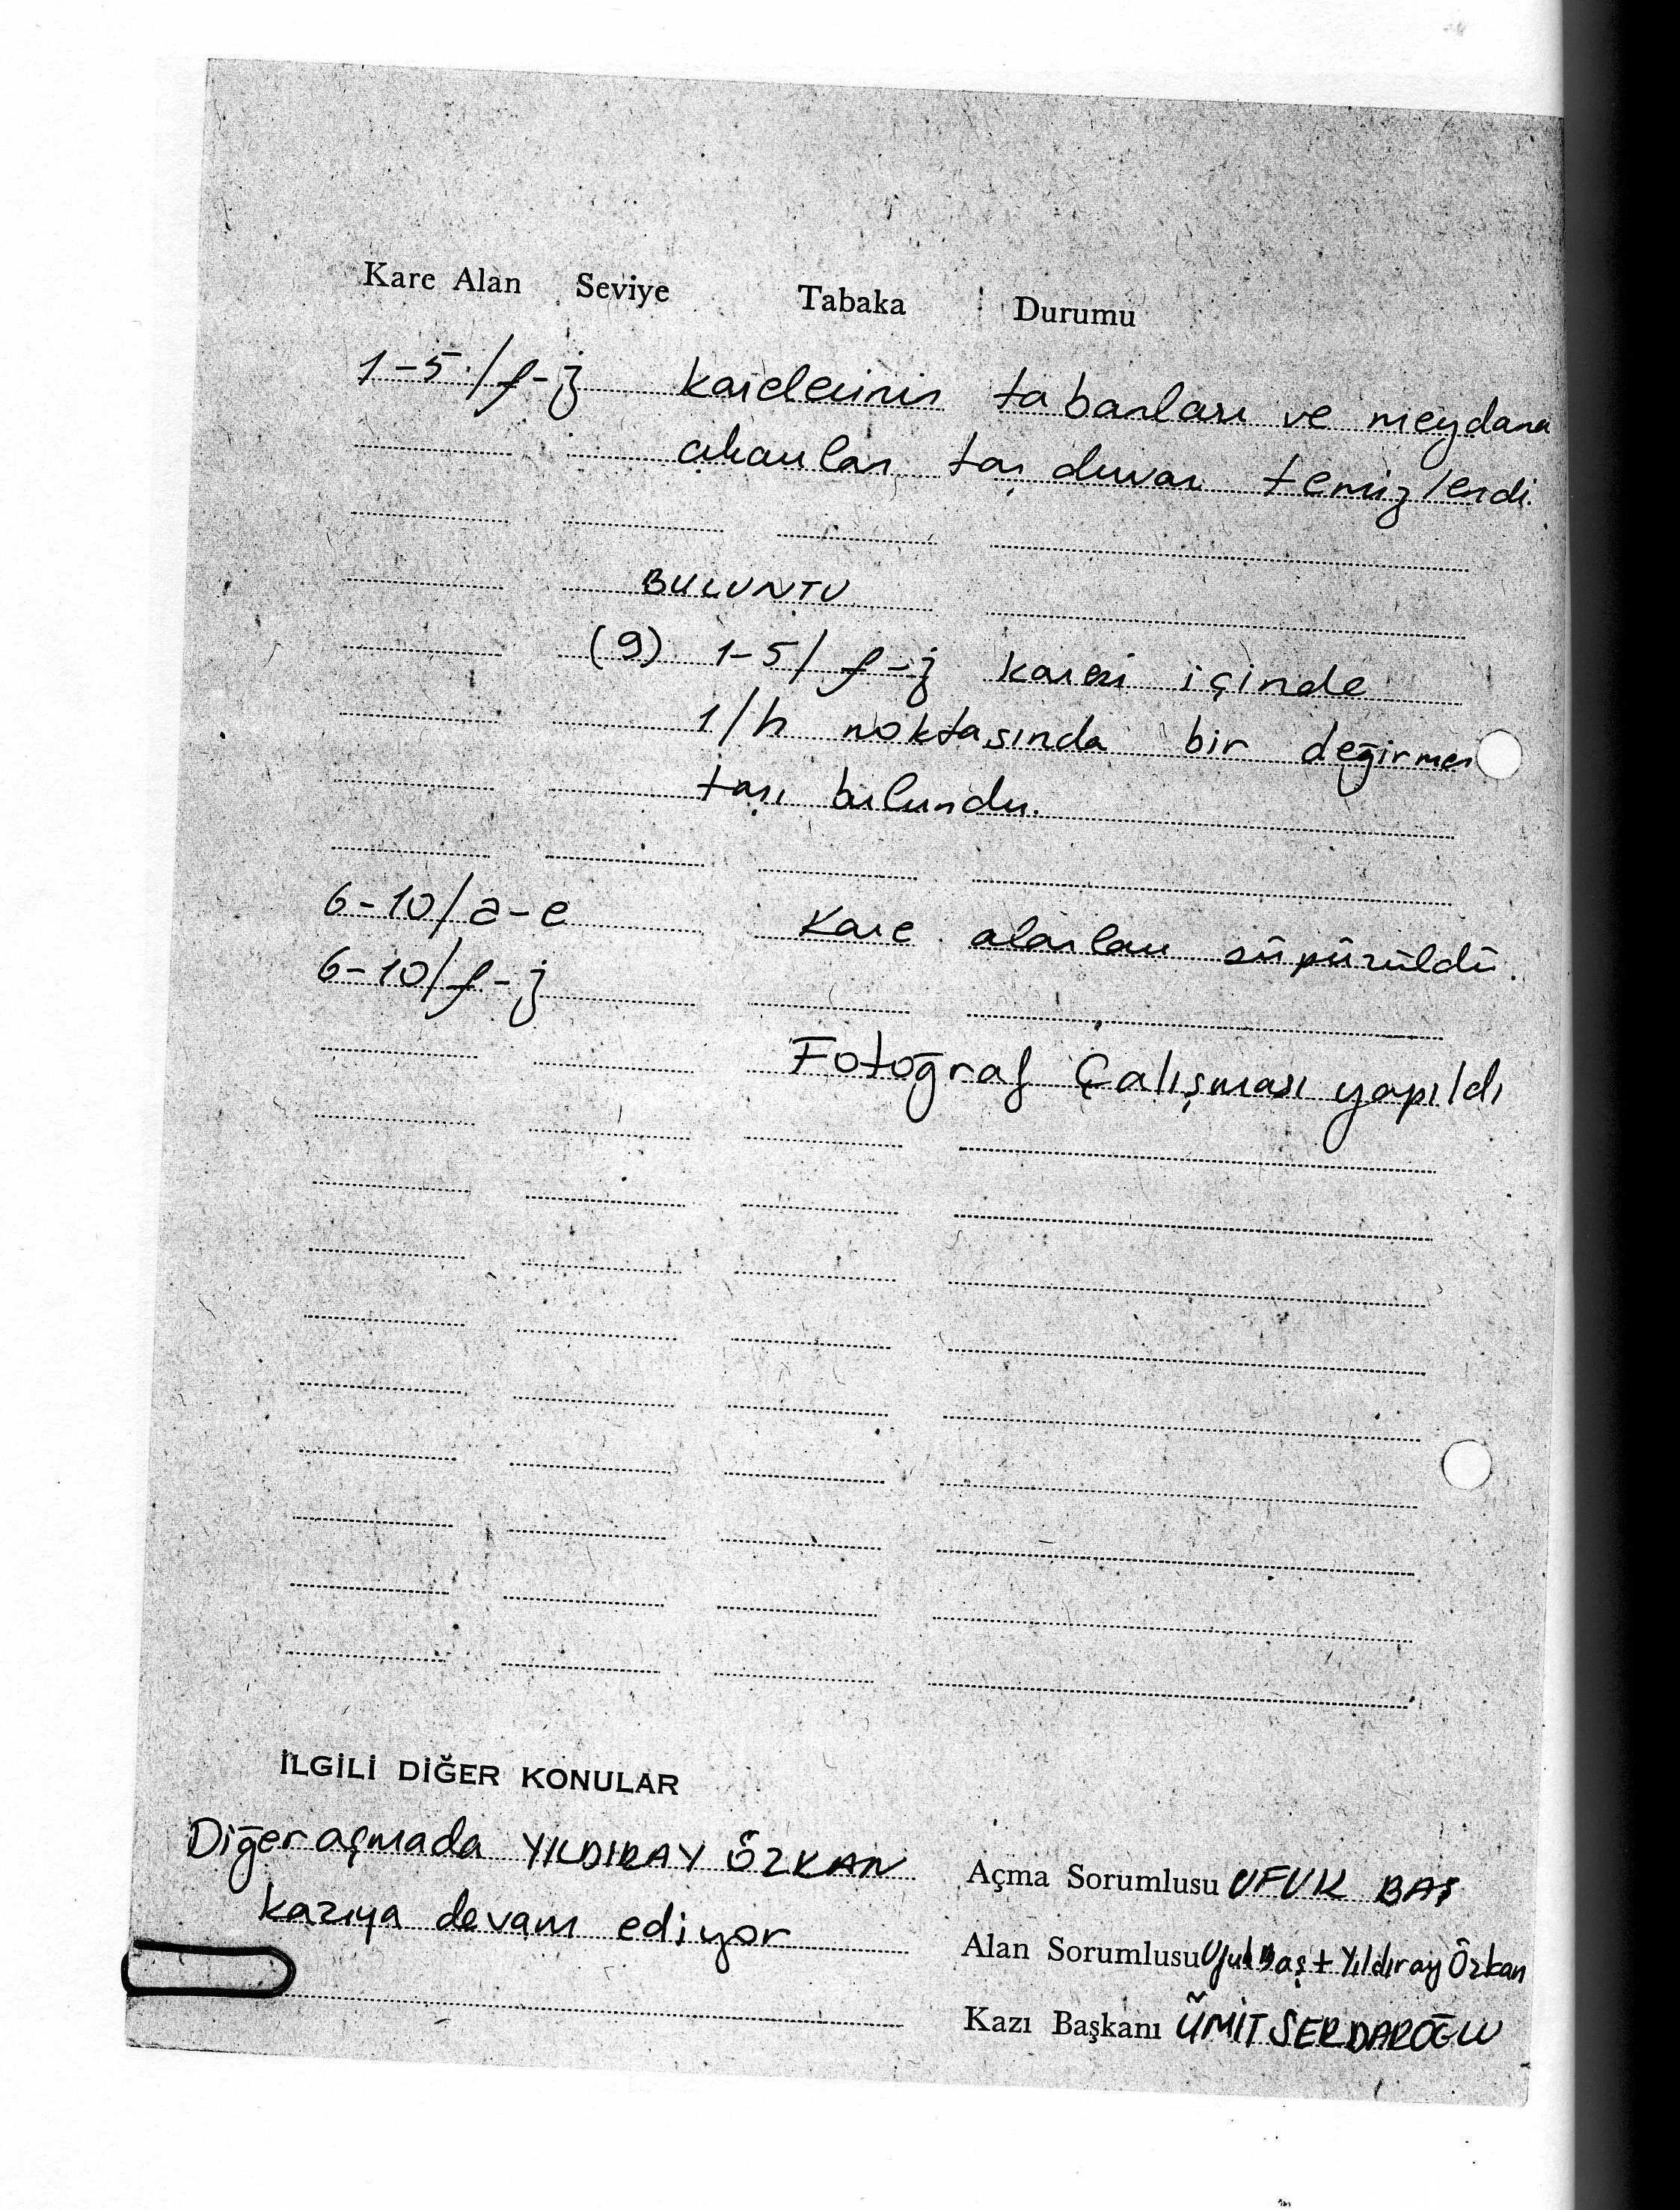 Kare Alan Seviye Tabaka Durumu
1-5/f-j karelerinin tabanları ve meydana
çıkarılan taş duvarı temizlendi.
BULUNTU
(9) 1-5/f-j karesi içinde
1/h noktasında bir değirmen
taşı bulundu.
6-10/a-e Kare alanları süpürüldü.
6-10/f-j
Fotoğraf Çalışması yapıldı
İLGİLİ DİĞER KONULAR
Diğer açmada YILDIRAY ÖZKAN
kazıya devam ediyor
Açma Sorumlusu UFUK BAŞ
Alan Sorumlusu Ufuk Baş + Yıldıray Özkan
Kazı Başkanı ÜMİT SERDAROĞLU